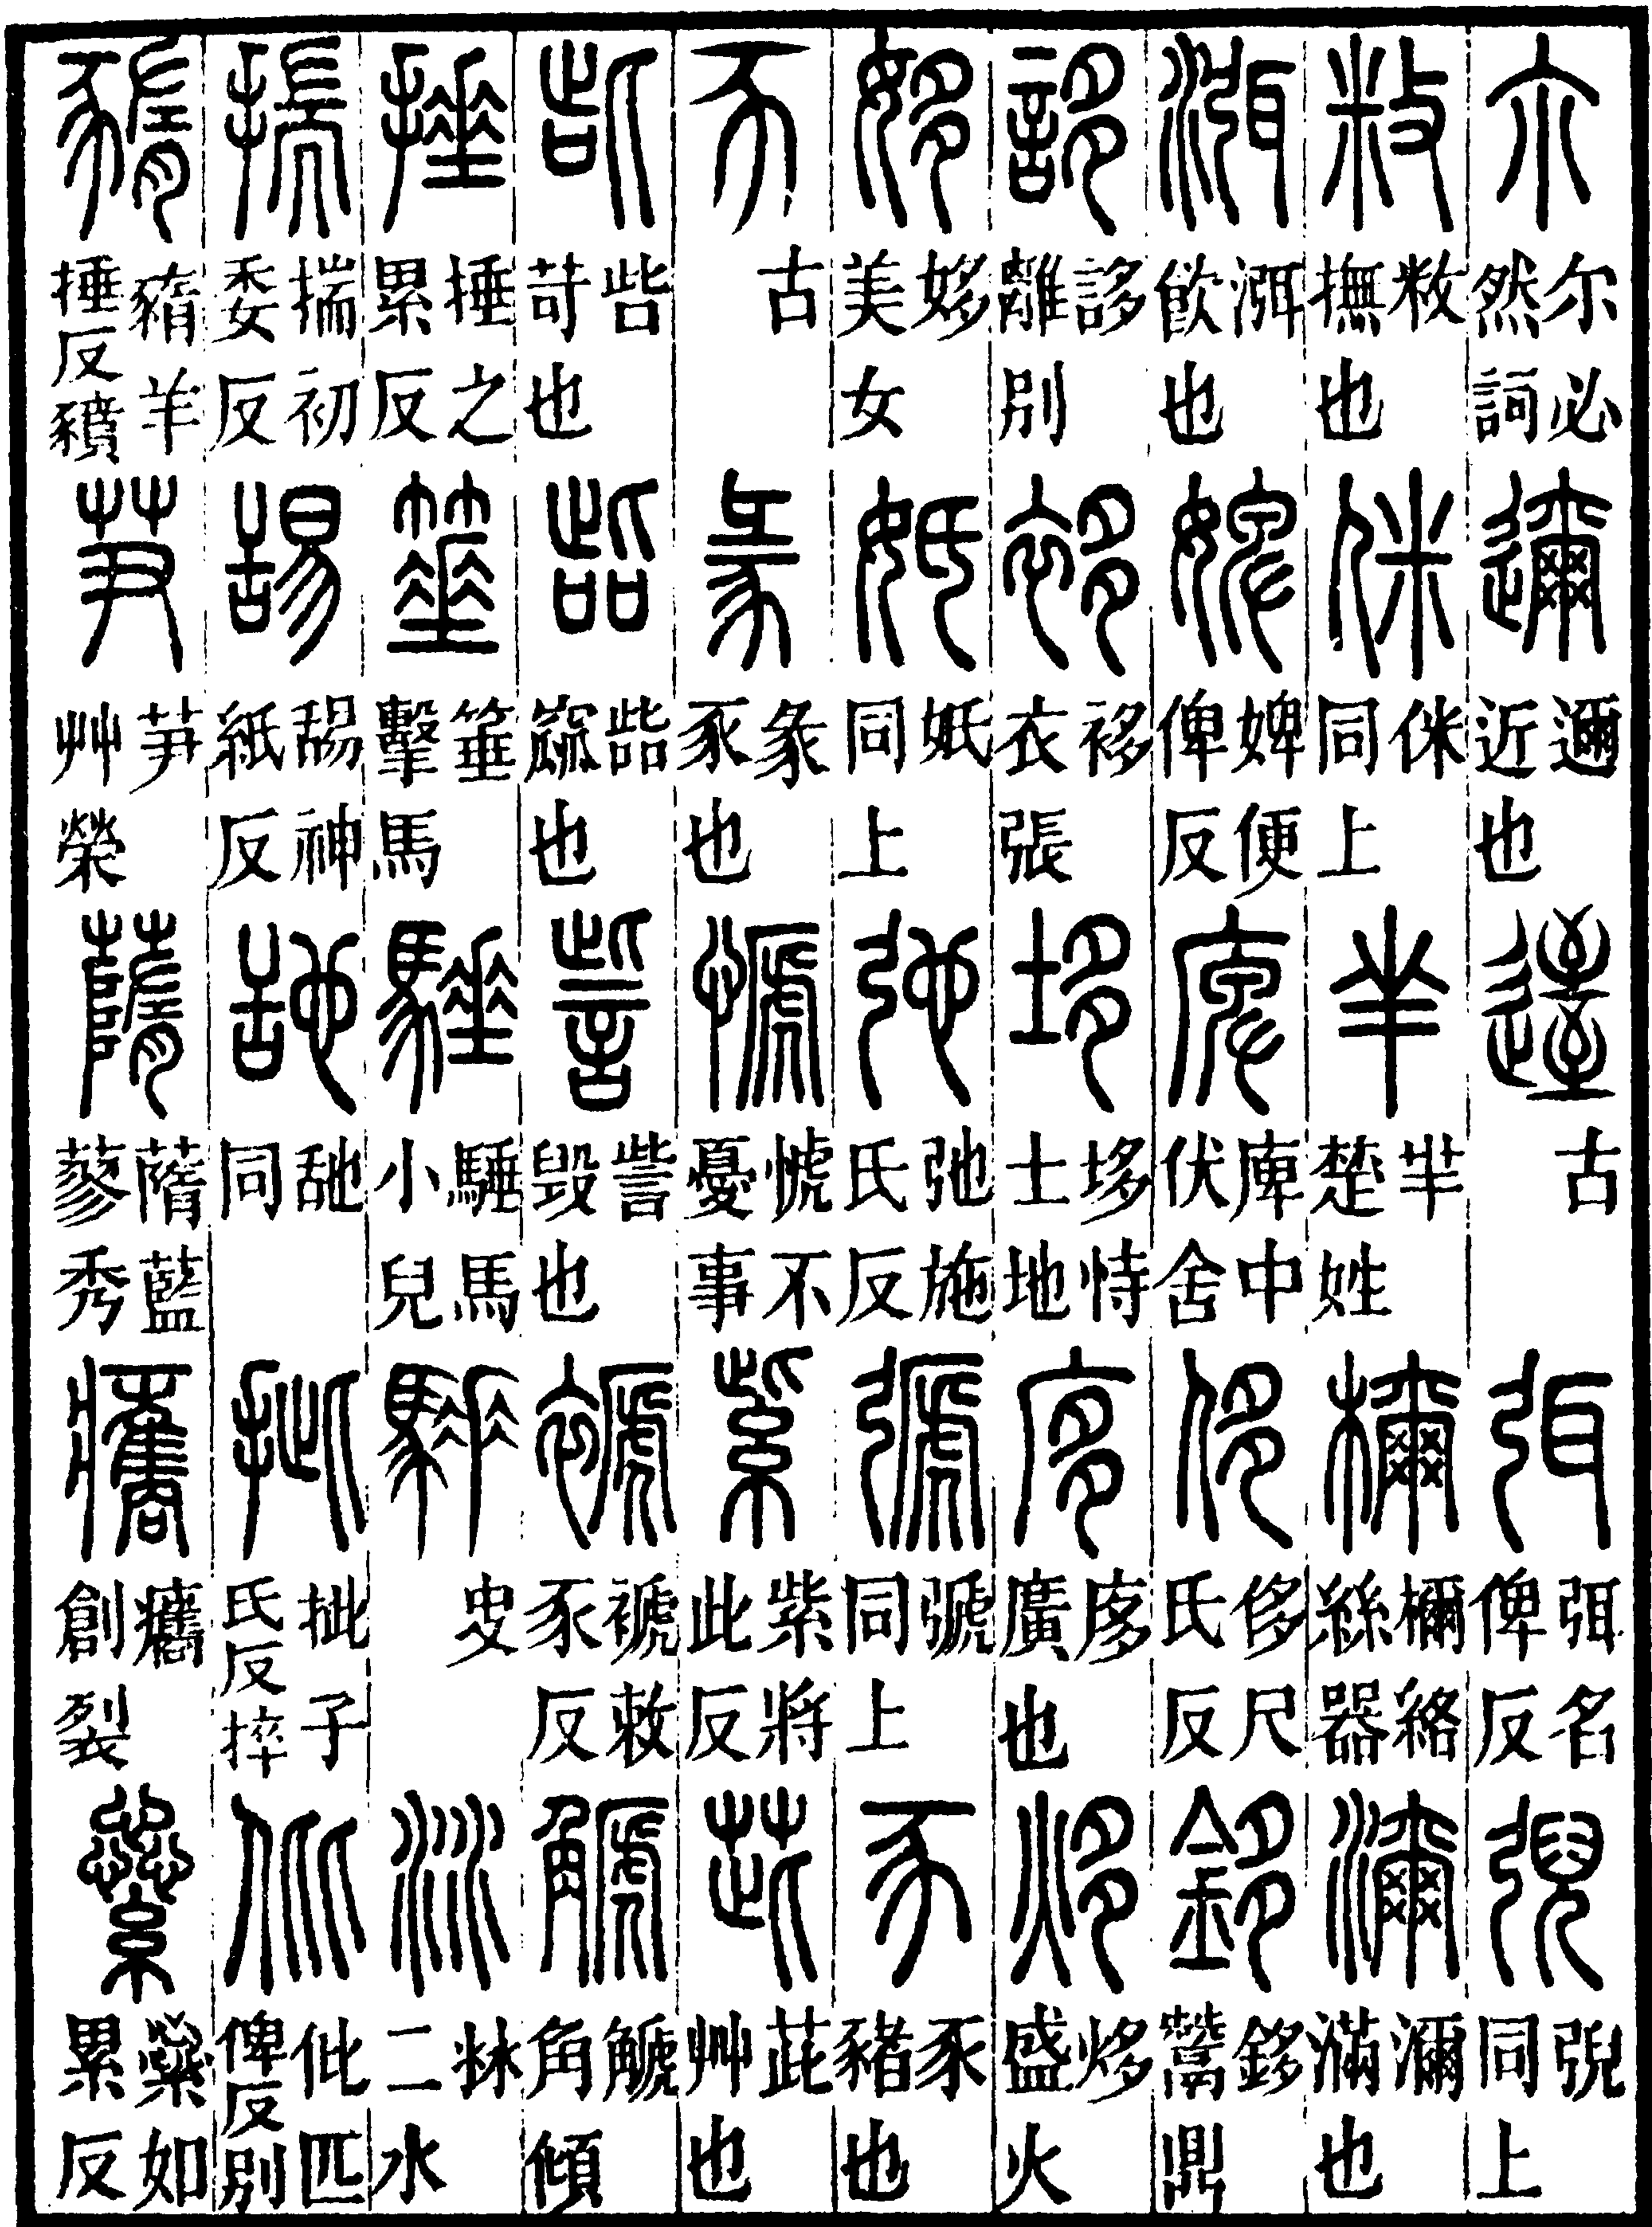 尒尔必然詞邇邇近也古弭弭名俾反同上
敉敉撫也侎侎同上羋羋楚姓檷檷絡絲器濔濔滿也
渳渳飲也婢婢便俾反庳庳中伏舍侈侈尺氏反鉹鉹鬵鼎
誃誃離別袳袳衣張垑垑恃土地㢋㢋廣也㶴㶴盛火
姼姼美女㚰㚰同上弛弛施氏反𢐋𢐋同上豕豕豬也
豕古彖彖豕也㥴㥴不憂事紫紫將此反茈茈艸也
呰呰苛也㱔㱔窳也訾訾毀也褫褫敕豕反䚦䚦角傾
捶捶之累反箠箠擊馬䮔䮔馬小兒沝沝二水
揣揣初委反舓舓神紙反𦧇𦧇同㧗㧗子氏反捽仳仳匹俾反別
䝐䝐羊捶反豶芛芛艸榮藍蓼秀創裂繠繠如累反